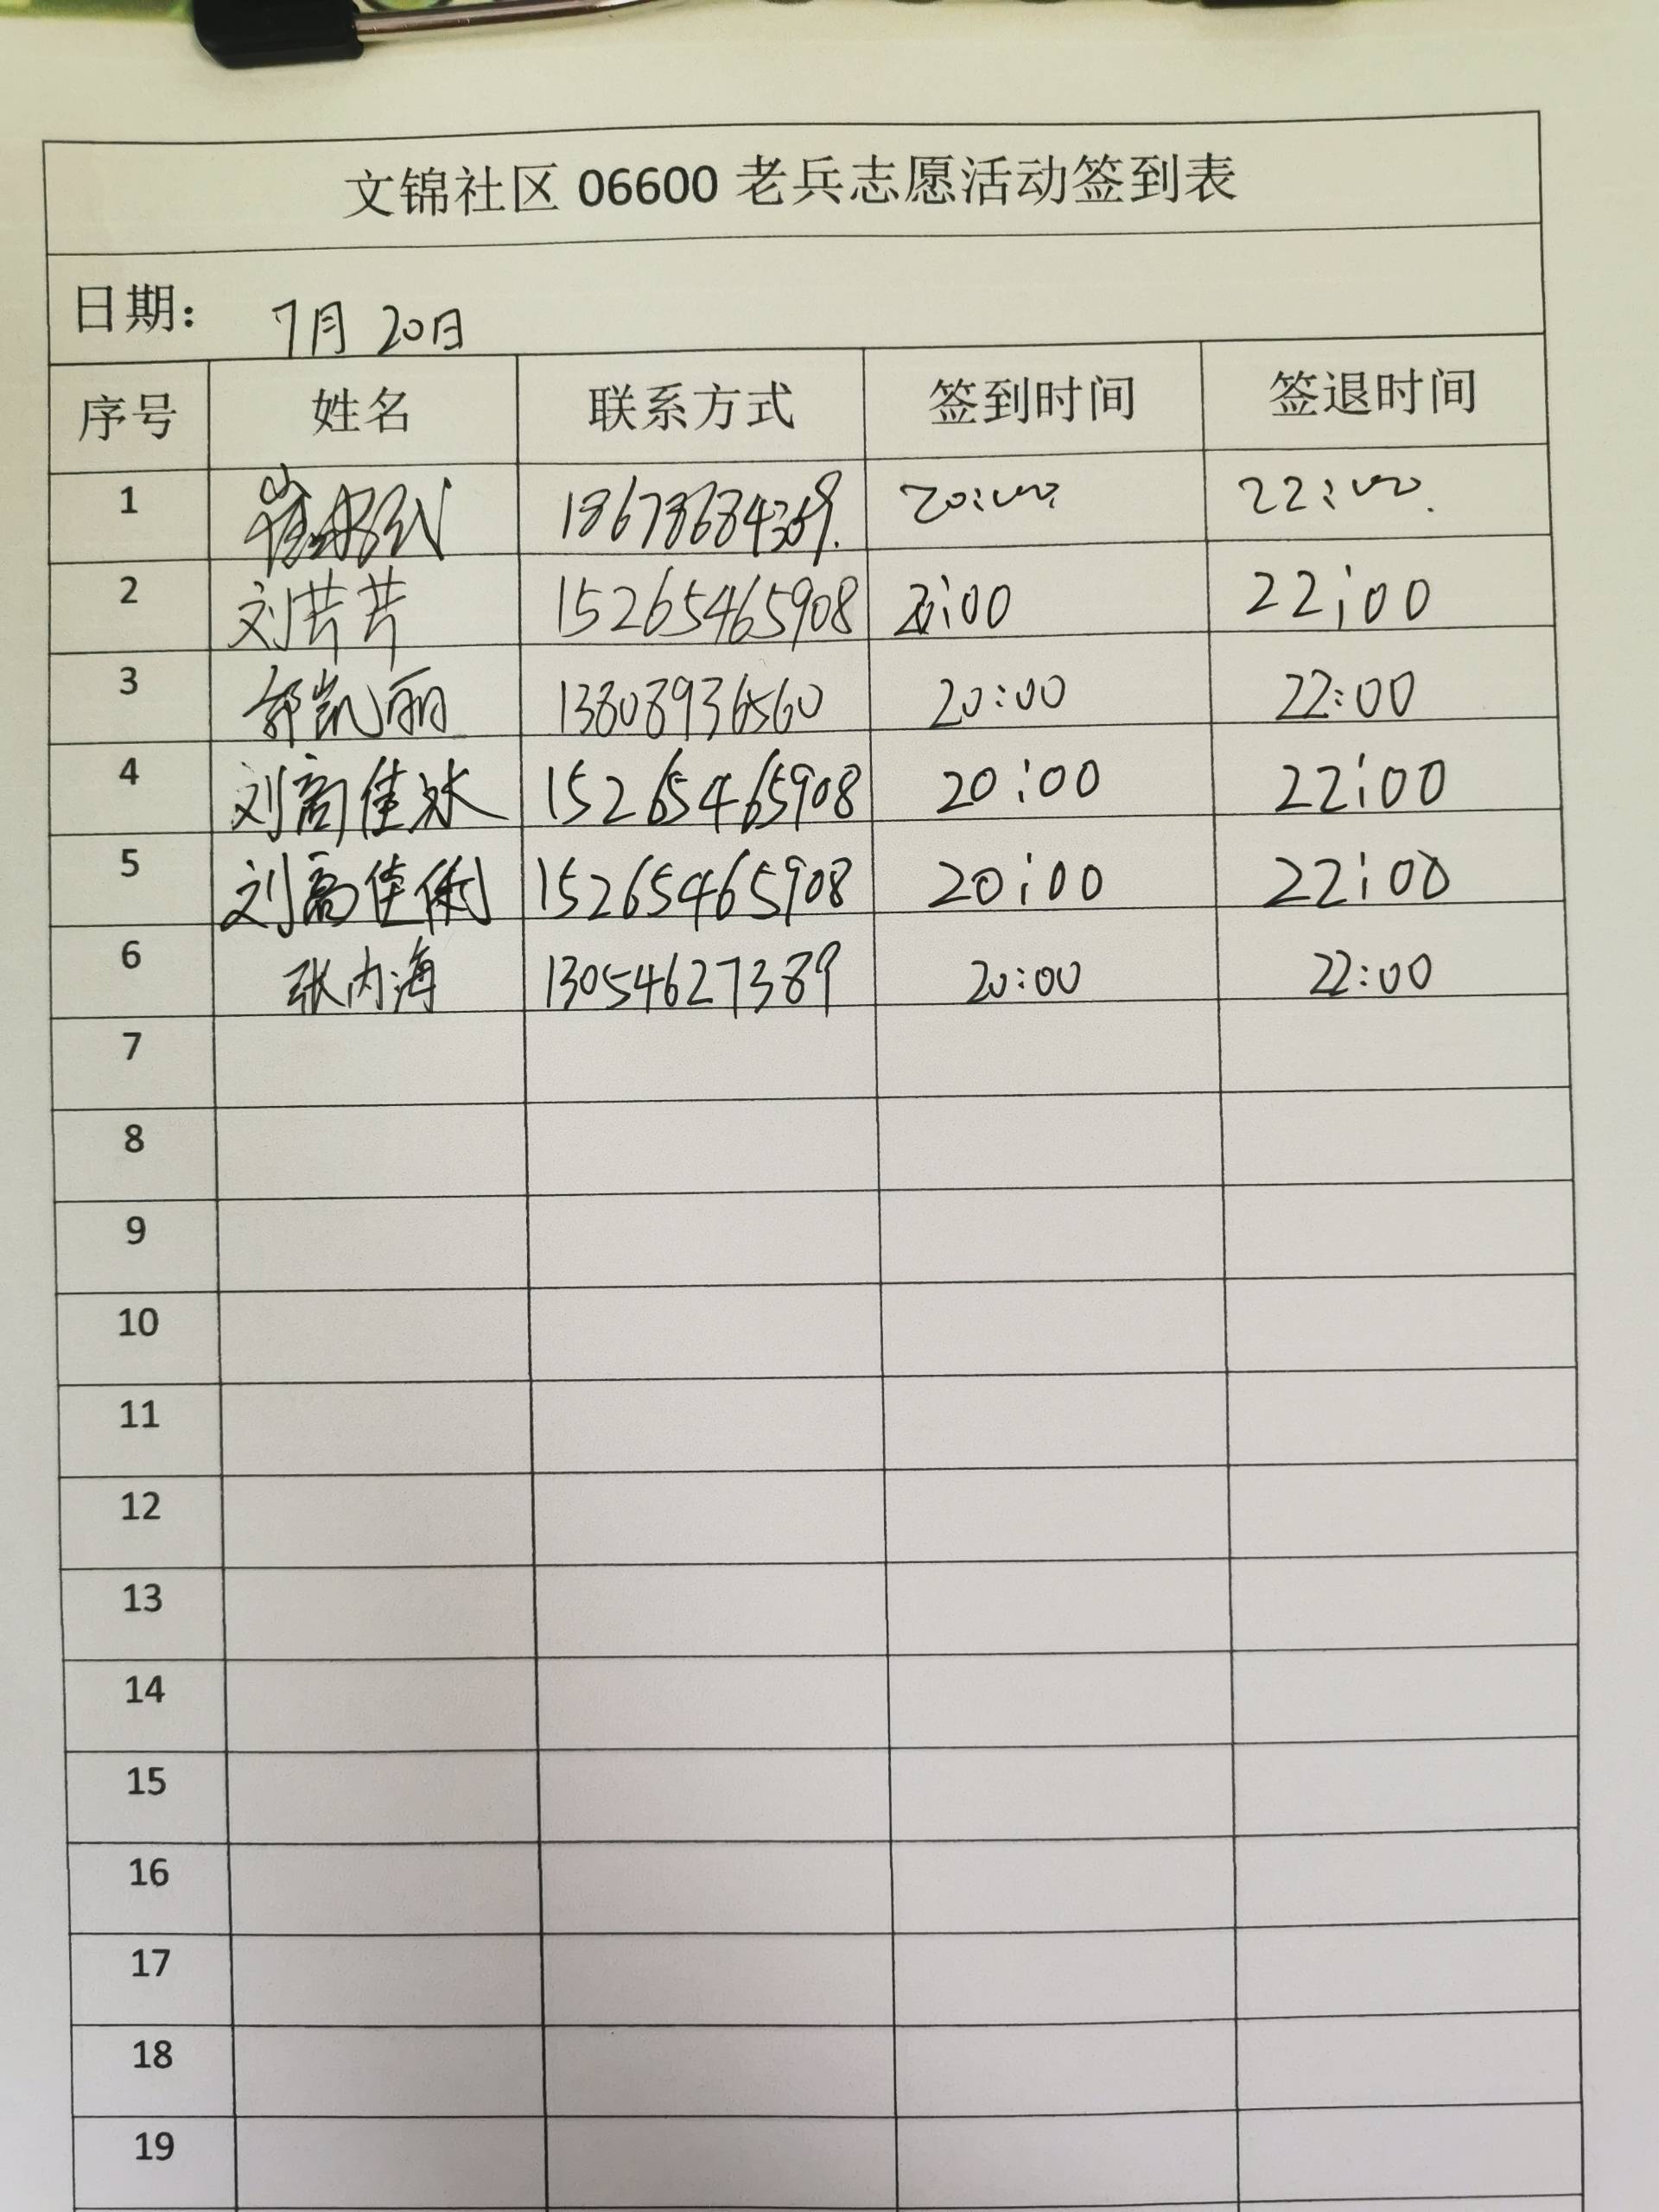 文锦社区 06600 老兵志愿活动签到表
日期： 7月 20日
序号 姓名 联系方式 签到时间 签退时间
1 20:00. 22:00.
2 刘芸芸 15265465908 20:00 22:00
3 郭凯丽 13808936560 20:00 22:00
4 刘高佳冰 15265465908 20:00 22:00
5 刘高佳俐 15265465908 20:00 22:00
6 张内海 13054627389 20:00 22:00
7
8
9
10
11
12
13
14
15
16
17
18
19